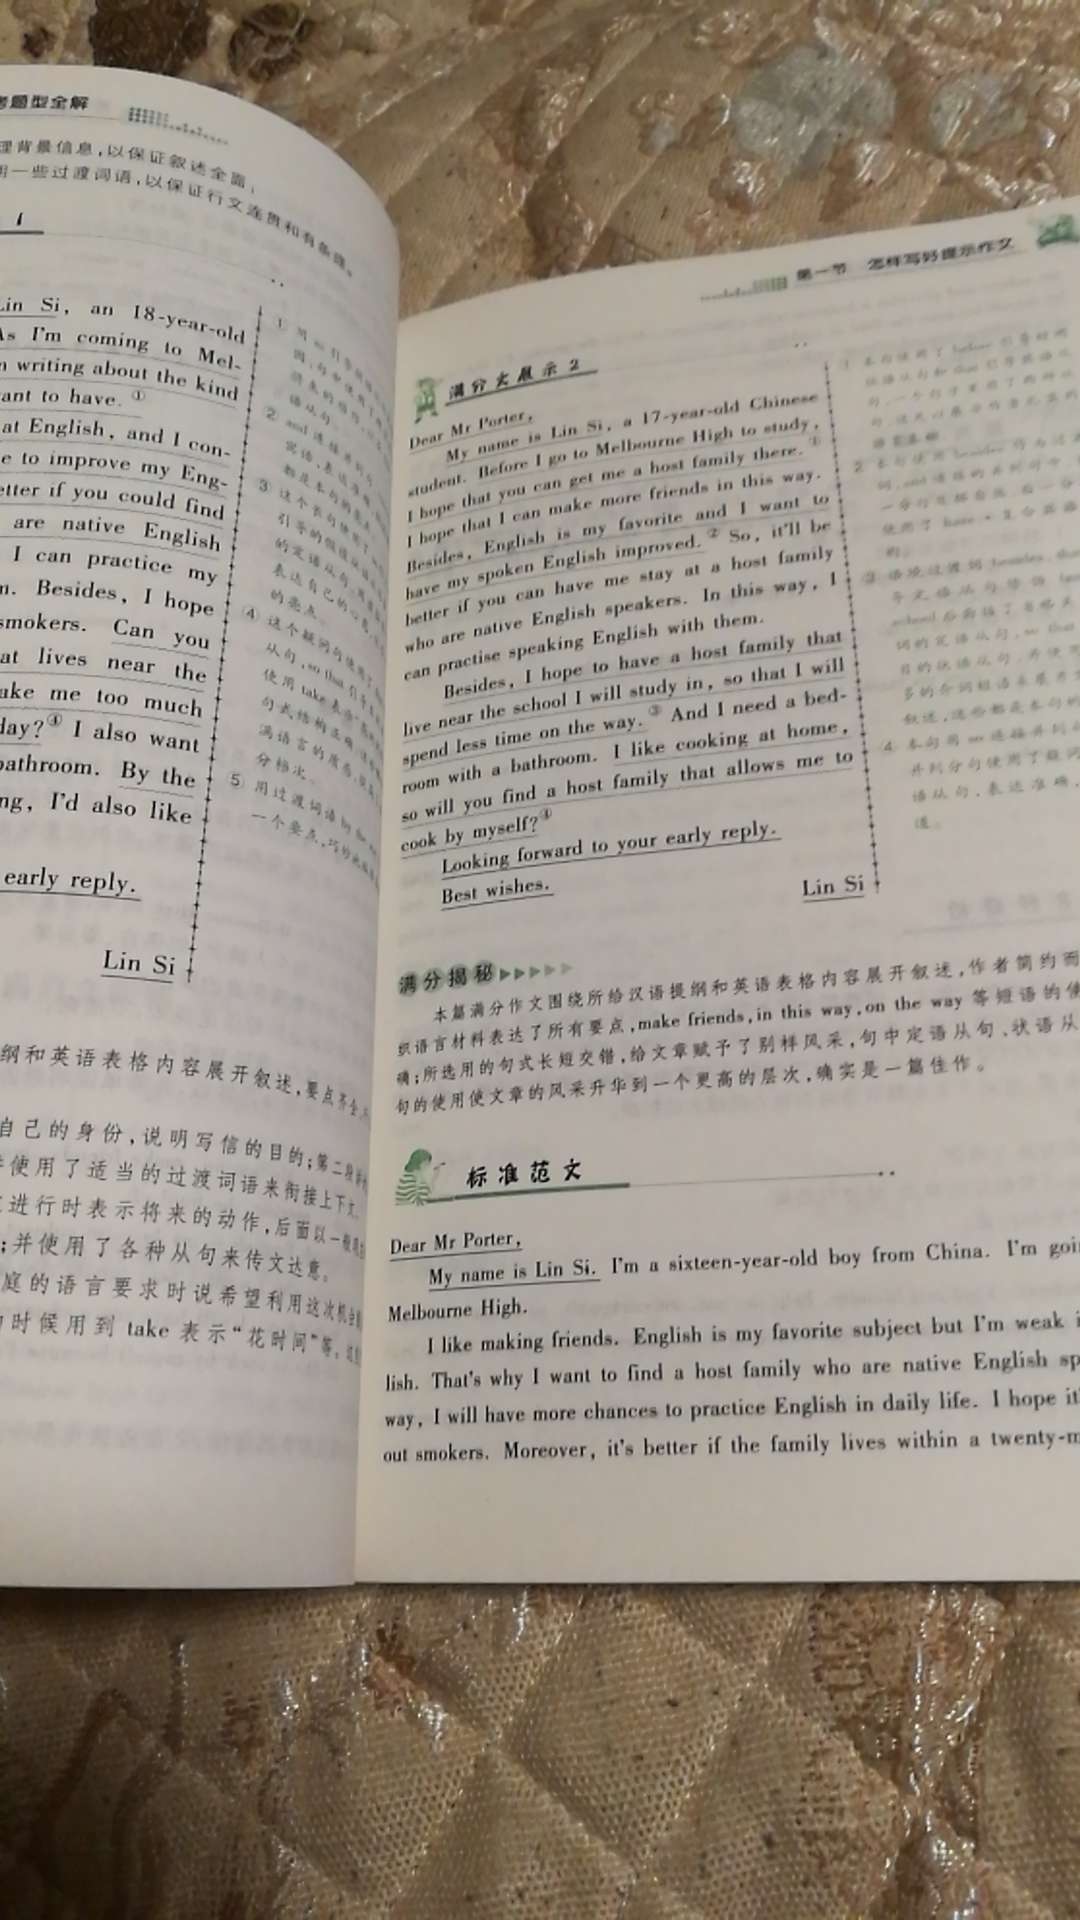 考题型全解
理背景信息,以保证叙述全面;
用一些过渡词语,以保证行文连贯和有条理。
1
Lin Si, an 18-year-old
As I'm coming to Mel-
writing about the kind
ant to have. ①
at English, and I con-
e to improve my Eng-
etter if you could find
are native English
I can practice my
Besides, I hope
smokers. Can you
at lives near the
ake me too much
day?④ I also want
bathroom. By the
ng, I'd also like
early reply.
Lin Si
②
定语,表达准确,
③ 这个长句使用了
的定语从句,
表达自己的心意,
的亮点。
④ 这个疑问句使用了
从句,so that 引导
使用 take 表示
句式结构正确,
满语言的质感,
分档次。
⑤ 用过渡词语
一个要点,巧妙
纲和英语表格内容展开叙述,要点齐全,
自己的身份,说明写信的目的;第二段
使用了适当的过渡词语来衔接上下文。
进行时表示将来的动作,后面以一般
;并使用了各种从句来传文达意。
庭的语言要求时说希望利用这次机会
时候用到 take 表示“花时间”等。
第一节 怎样写好提示作文
满分大展示2
Dear Mr Porter,
My name is Lin Si, a 17-year-old Chinese
student. Before I go to Melbourne High to study,
I hope that you can get me a host family there. ①
I hope that I can make more friends in this way.
Besides, English is my favorite and I want to
have my spoken English improved. ② So, it'll be
better if you can have me stay at a host family
who are native English speakers. In this way, I
can practise speaking English with them.
Besides, I hope to have a host family that
live near the school I will study in, so that I will
spend less time on the way. ③ And I need a bed-
room with a bathroom. I like cooking at home,
so will you find a host family that allows me to
cook by myself?④
Looking forward to your early reply.
Best wishes.
Lin Si
1 本句使用了 before 引导时间
状语从句和 that 引导宾语从
2 本句使用 besides 作为过渡
使用了 have + 复合宾语
3 语境过渡词 besides, that
导定语从句修饰
school 后面接了省略关
词的定语从句,so that
目的状语从句,并使用
多的介词短语来展开
叙述,这些都是本句的
4 本句用 so 连接并列
并列分句使用了疑问
语从句,表达准确,
道。
满分揭秘
本篇满分作文围绕所给汉语提纲和英语表格内容展开叙述,作者简约而
织语言材料表达了所有要点,make friends,in this way,on the way 等短语的使
确;所选用的句式长短交错,给文章赋予了别样风采,句中定语从句、状语从
句的使用使文章的风采升华到一个更高的层次,确实是一篇佳作。
标准范文
Dear Mr Porter,
My name is Lin Si. I'm a sixteen-year-old boy from China. I'm goi
Melbourne High.
I like making friends. English is my favorite subject but I'm weak i
lish. That's why I want to find a host family who are native English sp
way, I will have more chances to practice English in daily life. I hope it
out smokers. Moreover, it's better if the family lives within a twenty-m